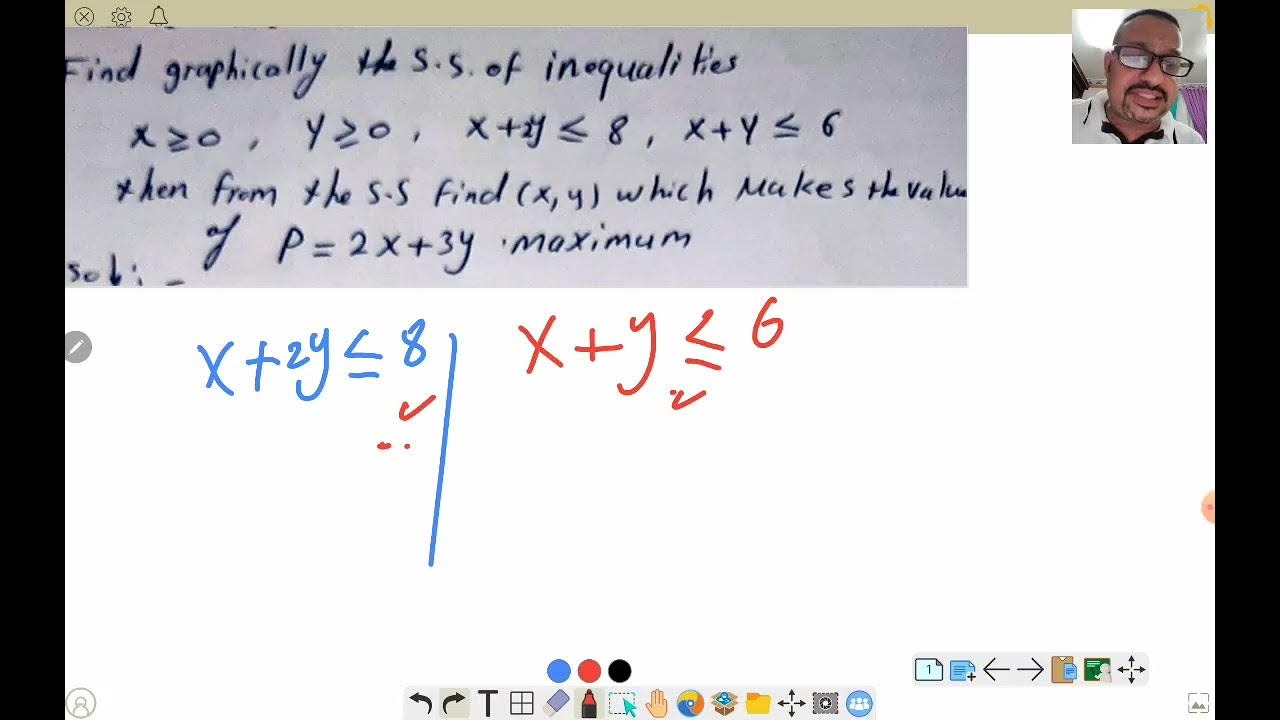 Find graphically the s.s. of inequalities
x ≥ 0 , y ≥ 0 , x + 2y ≤ 8 , x + y ≤ 6
then from the s.s find (x, y) which makes the value
of P = 2x + 3y maximum
sol: -
x + 2y ≤ 8
x + y ≤ 6
1
T